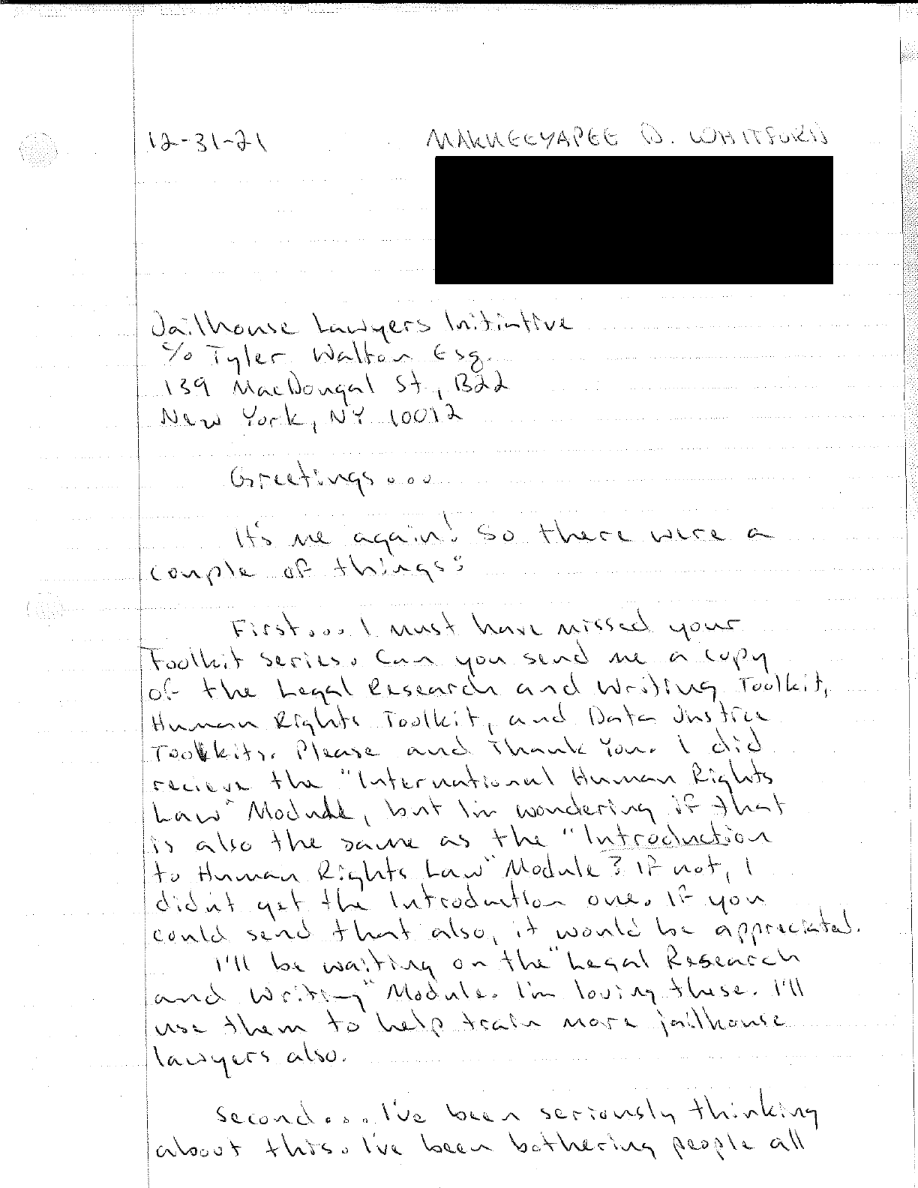 12-31-21 MAKUEEYAPEE D. WHITFORD
Jailhouse Lawyers Initiative
℅ Tyler Walton Esq.
139 MacDougal St, B22
New York, NY 10012
Greetings...
It's me again! So there were a
couple of things:
First... I must have missed your
Toolkit series. Can you send me a copy
of the Legal Research and Writing Toolkit,
Human Rights Toolkit, and Data Justice
Toolkits. Please and Thank You. I did
recieve the "International Human Rights
Law" Module, but I'm wondering if that
is also the same as the "Introduction
to Human Rights Law" Module? If not, I
didn't get the Introduction one. If you
could send that also, it would be appreciated.
I'll be waiting on the "Legal Research
and Writing" Module. I'm loving these. I'll
use them to help train more jailhouse
lawyers also.
Second... I've been seriously thinking
about this. I've been bothering people all